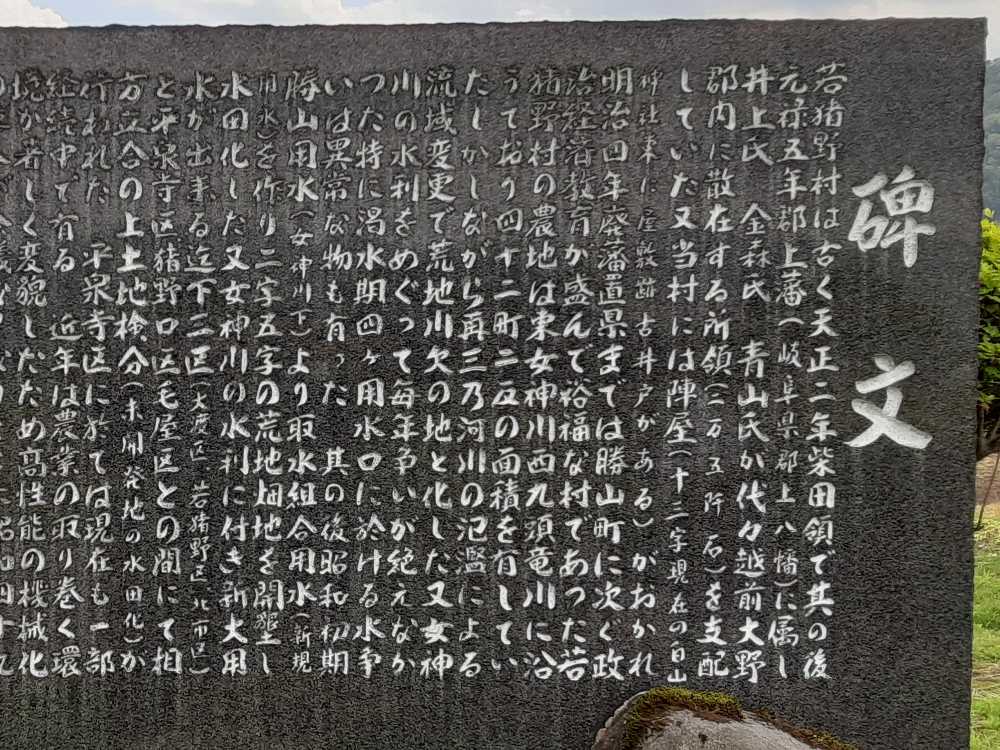 碑文
若猪野村は古く天正二年柴田領で其の後
元禄五年郡上藩(岐阜県郡上八幡)に属し
井上氏 金森氏 青山氏が代々越前大野
郡内に散在する所領(三万五阡石)を支配
していた又当村には陣屋(十三字現在の白山
神社東に屋敷跡古井戸がある)がおかれ
明治四年廃藩置県までは勝山町に次ぐ政
治経済教育が盛んで裕福な村であった若
猪野村の農地は東女神川西九頭竜川に沿
うており四十二町二反の面積を有してい
たしかしながら再三乃河川の氾濫による
流域変更で荒地川欠の地と化した又女神
川の水利をめぐって毎年争いが絶えなか
つた特に渇水期四ヶ用水口に於ける水争
いは異常な物も有った 其の後昭和初期
勝山用水(女神川下)より取水組合用水(新規
用水)を作り二字五字の荒地畑地を開墾し
水田化した又女神川の水利に付き新大用
水が出来る迄下三区(大渡区 若猪野区 北市区)
と平泉寺区猪野口区毛屋区との間にて相
方立合の上土地検分(未開発地の水田化)が
行われた 平泉寺区に於ては現在も一部
経続中で有る 近年は農業の取り巻く環
境が若しく変貌したため高性能の機械化